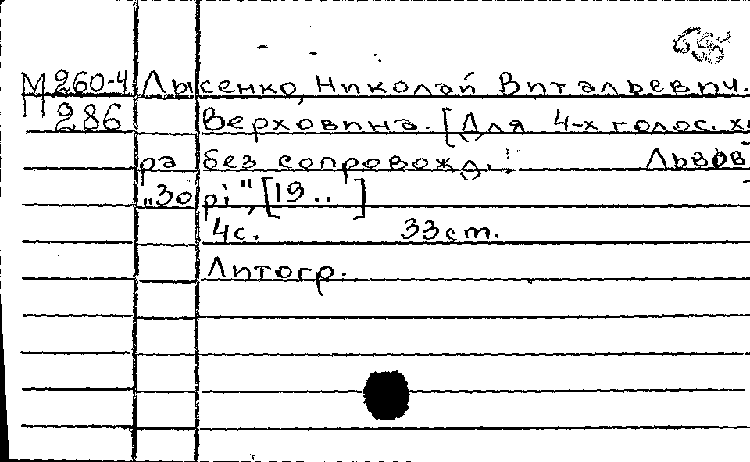 695
М 260-4 Лысенко, Николай Витальевич.
П 286 Верховина. [Для 4-х голос. х
ра без сопровожд.! Львов
„Зорі", [19..]
4с. 33cm.
Литогр.